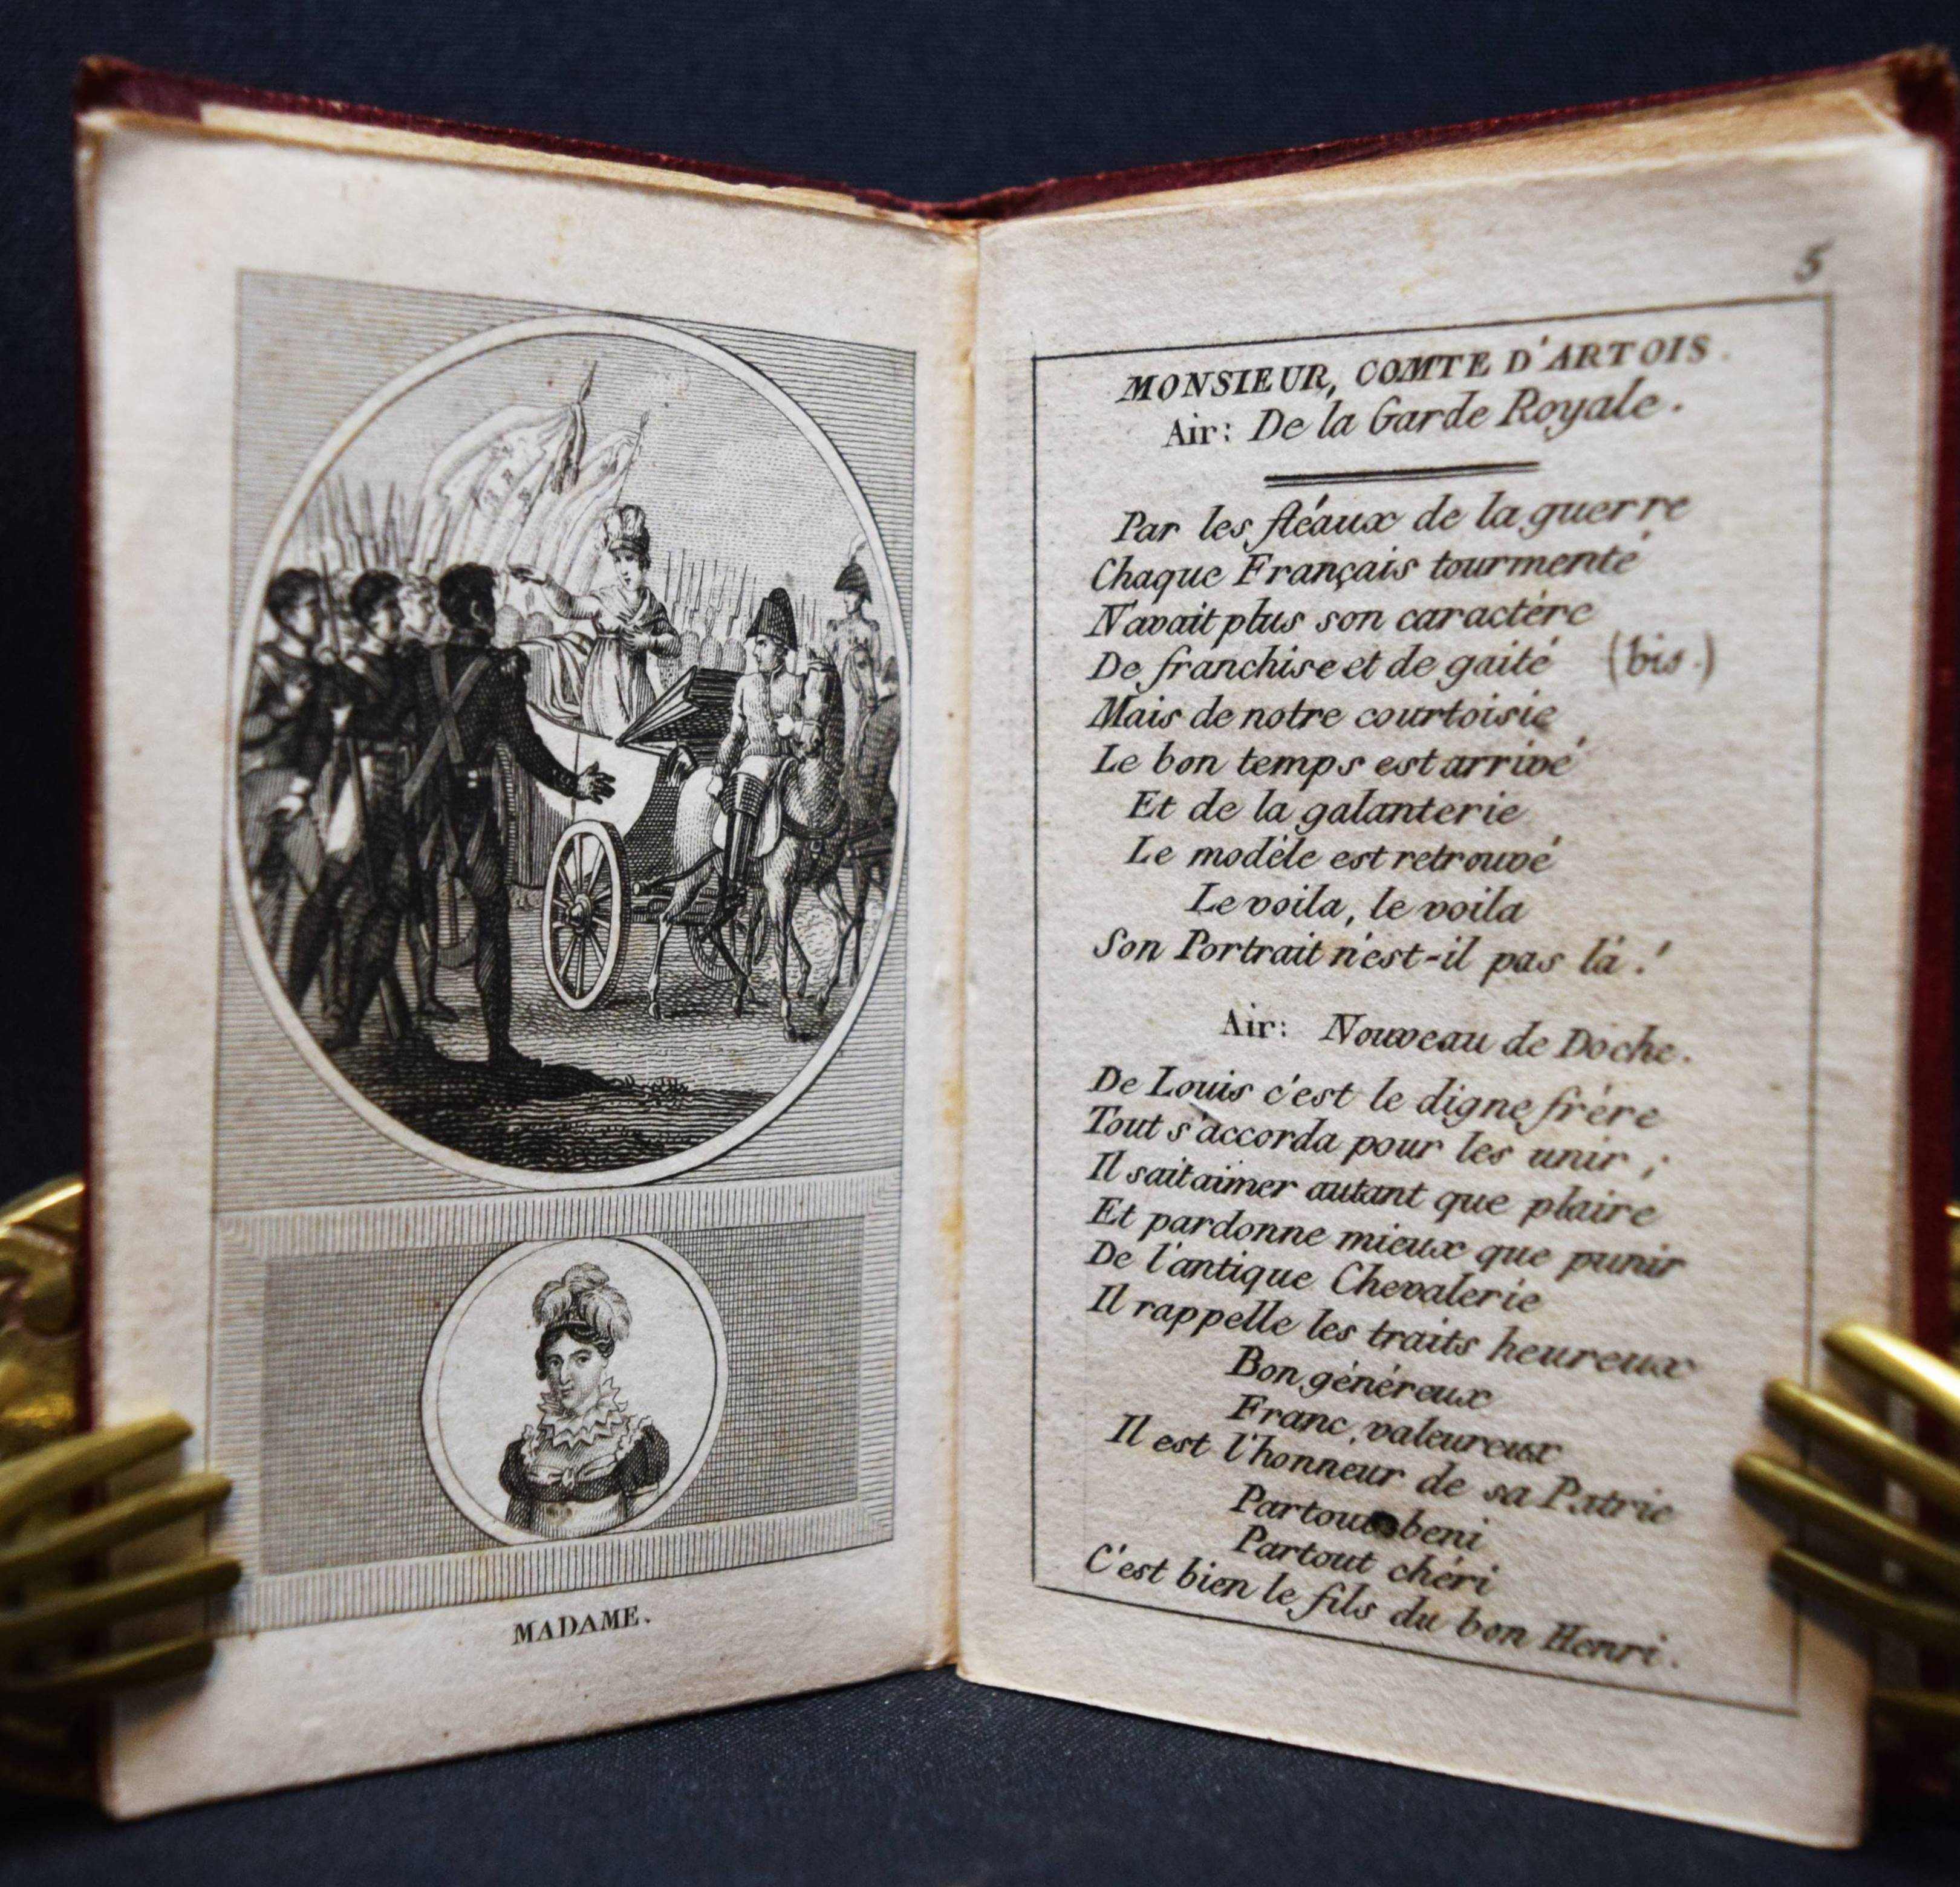 MADAME.
5
MONSIEUR, COMTE D'ARTOIS.
Air: De la Garde Royale.
Par les fléaux de la guerre
Chaque Français tourmenté
N'avait plus son caractère
De franchise et de gaité (bis.)
Mais de notre courtoisie
Le bon temps est arrivé
Et de la galanterie
Le modèle est retrouvé
Le voila, le voila
Son Portrait n'est-il pas là !
Air: Nouveau de Doche.
De Louis c'est le digne frère
Tout s'accorda pour les unir ;
Il sait aimer autant que plaire
Et pardonne mieux que punir
De l'antique Chevalerie
Il rappelle les traits heureux
Bon, généreux
Franc, valeureux
Il est l'honneur de sa Patrie
Partout beni
Partout chéri
C'est bien le fils du bon Henri.